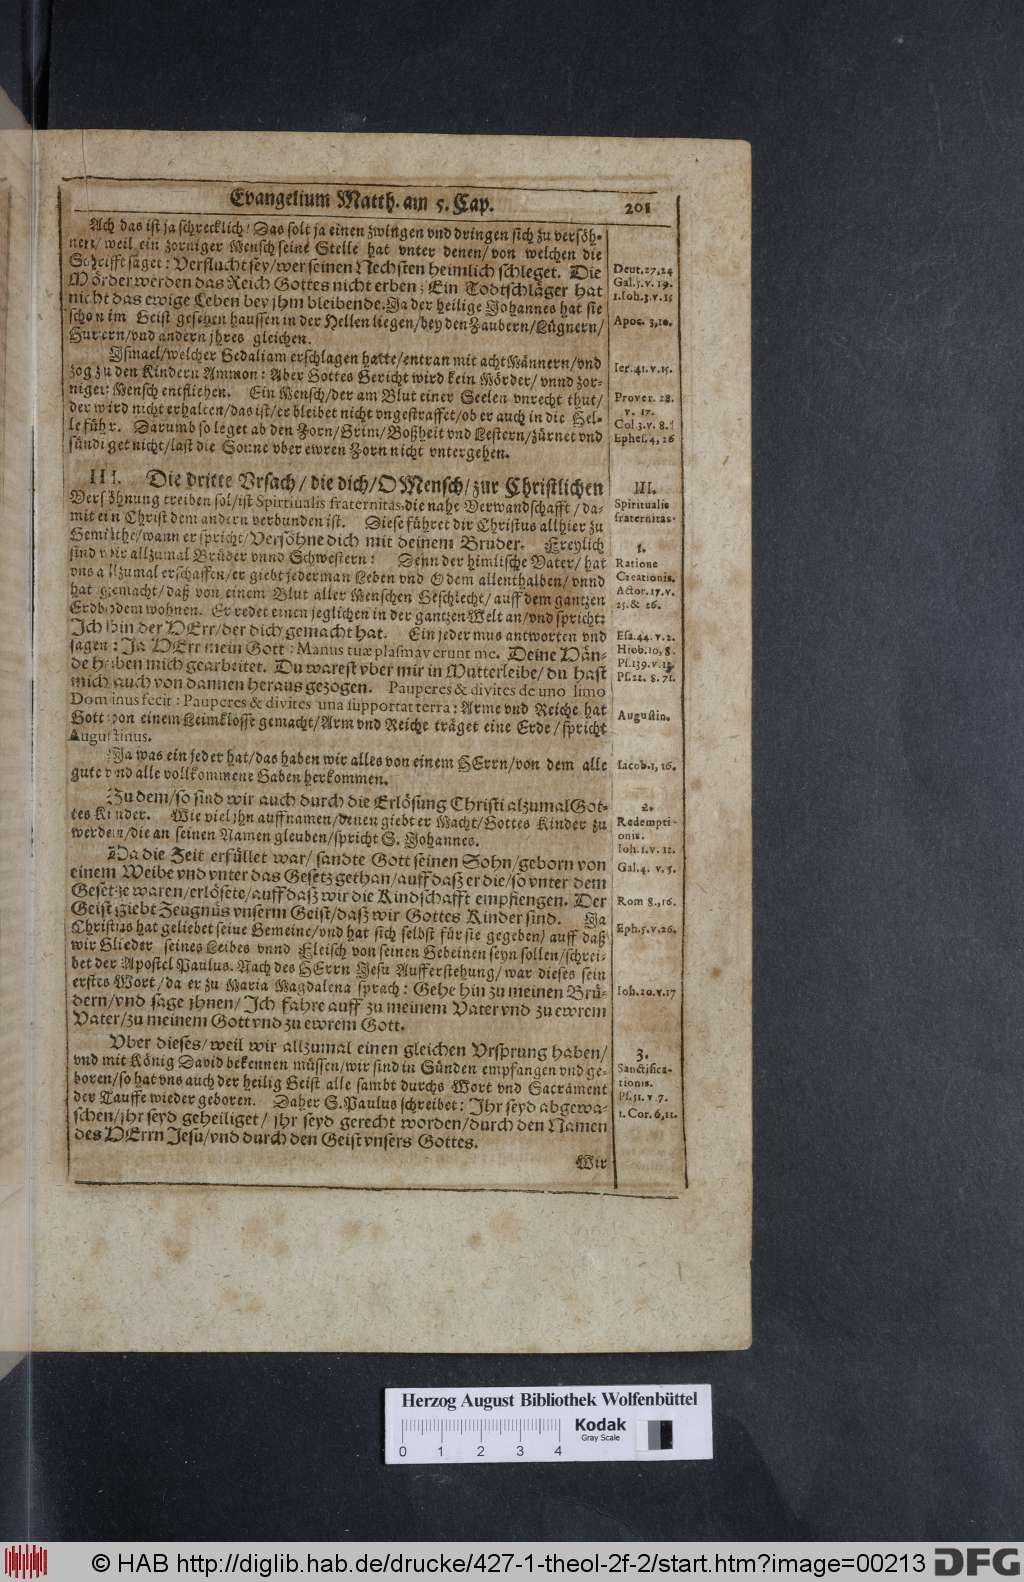 Evangelium Matth. am 5. Cap.
201
Ach das ist ja schrecklich! Das solt ja einen zwingen vnd dringen sich zu versöh-
nen/ weil ein zorniger Mensch seine Stelle hat vnter denen/ von welchen die
Schrifft saget: Verflucht sey/ wer seinen Nechsten heimlich schleget. Die
Mörder werden das Reich Gottes nicht erben; Ein Todtschläger hat
nicht das ewige Leben bey jhm bleibende. Ja der heilige Johannes hat sie
schon im Geist gesehen haussen in der Hellen liegen/ bey den Zaubern/ Lügnern/
Hurern/ vnd andern jhres gleichen.
Deut. 27, 24
Gal. 5. v. 19.
1. Ioh. 3. v. 15
Apoc. 3, 10.
Ismael/ welcher Gedaliam erschlagen hatte/ entran mit acht Männern/ vnd
zog zu den Kindern Ammon: Aber Gottes Gericht wird kein Mörder/ vnnd zor-
niger Mensch entfliehen. Ein Mensch/ der am Blut einer Seelen vnrecht thut/
der wird nicht erhalten/ das ist/ er bleibet nicht vngestraffet/ ob er auch in die Hel-
le führ. Darumb so leget ab den Zorn/ Grim/ Boßheit vnd Lestern/ zürnet vnd
sündiget nicht/ last die Sonne vber ewren Zorn nicht vntergehen.
Ier. 41. v. 15.
Prover. 28.
v. 17.
Col 3. v. 8.
Ephes. 4, 26
III. Die dritte Vrsach/ die dich/ O Mensch/ zur Christlichen
Versöhnung treiben sol/ ist Spirtiualis fraternitas, die nahe Verwandschafft/ da-
mit ein Christ dem andern verbunden ist. Diese führet dir Christus allhier zu
Gemüthe/ wann er spricht/ Versöhne dich mit deinem Bruder. Freylich
sind wir allzumal Brüder vnnd Schwestern: Denn der himlische Vater/ hat
vns allzumal erschaffen/ er giebt jederman Leben vnd Odem allenthalben/ vnnd
hat gemacht/ daß von einem Blut aller Menschen Geschlecht/ auff dem gantzen
Erdbodem wohnen. Er redet einen jeglichen in der gantzen Welt an/ vnd spricht:
Ich bin der HErr/ der dich gemacht hat. Ein jeder mus antworten vnd
sagen: Ja HErr mein Gott: Manus tuæ plasmaverunt me. Deine Hän-
de haben mich gearbeitet. Du warest vber mir in Mutterleibe/ du hast
mich auch von dannen heraus gezogen. Pauperes & divites de uno limo
Dominus fecit: Pauperes & divites una supportat terra: Arme vnd Reiche hat
Gott von einem Leimklosse gemacht/ Arm vnd Reiche träget eine Erde/ spricht
Augustinus.
III.
Spiritualis
fraternitas.
1.
Ratione
Creationis.
Actor. 17. v.
25. & 26.
Esa. 44. v. 2.
Hiob. 10, 8.
Ps. 139. v. 13.
Ps. 22. 8. 71.
Augustin.
Ja was ein jeder hat/ das haben wir alles von einem HErrn/ von dem alle
gute vnd alle vollkommene Gaben herkommen.
Iacob. 1, 16.
Zu dem/ so sind wir auch durch die Erlösung Christi alzumal Got-
tes Kinder. Wie viel jhn auffnamen/ denen giebt er Macht/ Gottes Kinder zu
werden/ die an seinen Namen gleuben/ spricht S. Johannes.
2.
Redempti-
onis.
Ioh. 1. v. 12.
Da die Zeit erfüllet war/ sandte Gott seinen Sohn/ geborn von
einem Weibe vnd vnter das Gesetz gethan/ auff daß er die/ so vnter dem
Gesetze waren/ erlösete/ auff daß wir die Kindschafft empfiengen. Der
Geist giebt Zeugnüs vnserm Geist/ daß wir Gottes Kinder sind. Ja
Christus hat geliebet seine Gemeine/ vnd hat sich selbst für sie gegeben/ auff daß
wir Glieder seines Leibes vnnd Fleisch von seinen Gebeinen seyn sollen/ schrei-
bet der Apostel Paulus. Nach des HErrn Jesu Aufferstehung/ war dieses sein
erstes Wort/ da er zu Maria Magdalena sprach: Gehe hin zu meinen Brü-
dern/ vnd sage jhnen/ Ich fahre auff zu meinem Vater vnd zu ewrem
Vater/ zu meinem Gott vnd zu ewrem Gott.
Gal. 4. v. 5.
Rom 8., 16.
Eph. 5. v. 26.
Ioh. 20. v. 17
Vber dieses/ weil wir allzumal einen gleichen Vrsprung haben/
vnd mit König David bekennen müssen/ wir sind in Sünden empfangen vnd ge-
boren/ so hat vns auch der heilig Geist alle sambt durchs Wort vnd Sacrament
der Tauffe wieder geboren. Daher S. Paulus schreibet: Ihr seyd abgewa-
schen/ jhr seyd geheiliget/ jhr seyd gerecht worden/ durch den Namen
des HErrn Jesu/ vnd durch den Geist vnsers Gottes.
3.
Sanctifica-
tionis.
Ps. 51. v. 7.
1. Cor. 6, 11.
Wir
Herzog August Bibliothek Wolfenbüttel
Kodak
Gray Scale
0 1 2 3 4
© HAB http://diglib.hab.de/drucke/427-1-theol-2f-2/start.htm?image=00213
DFG